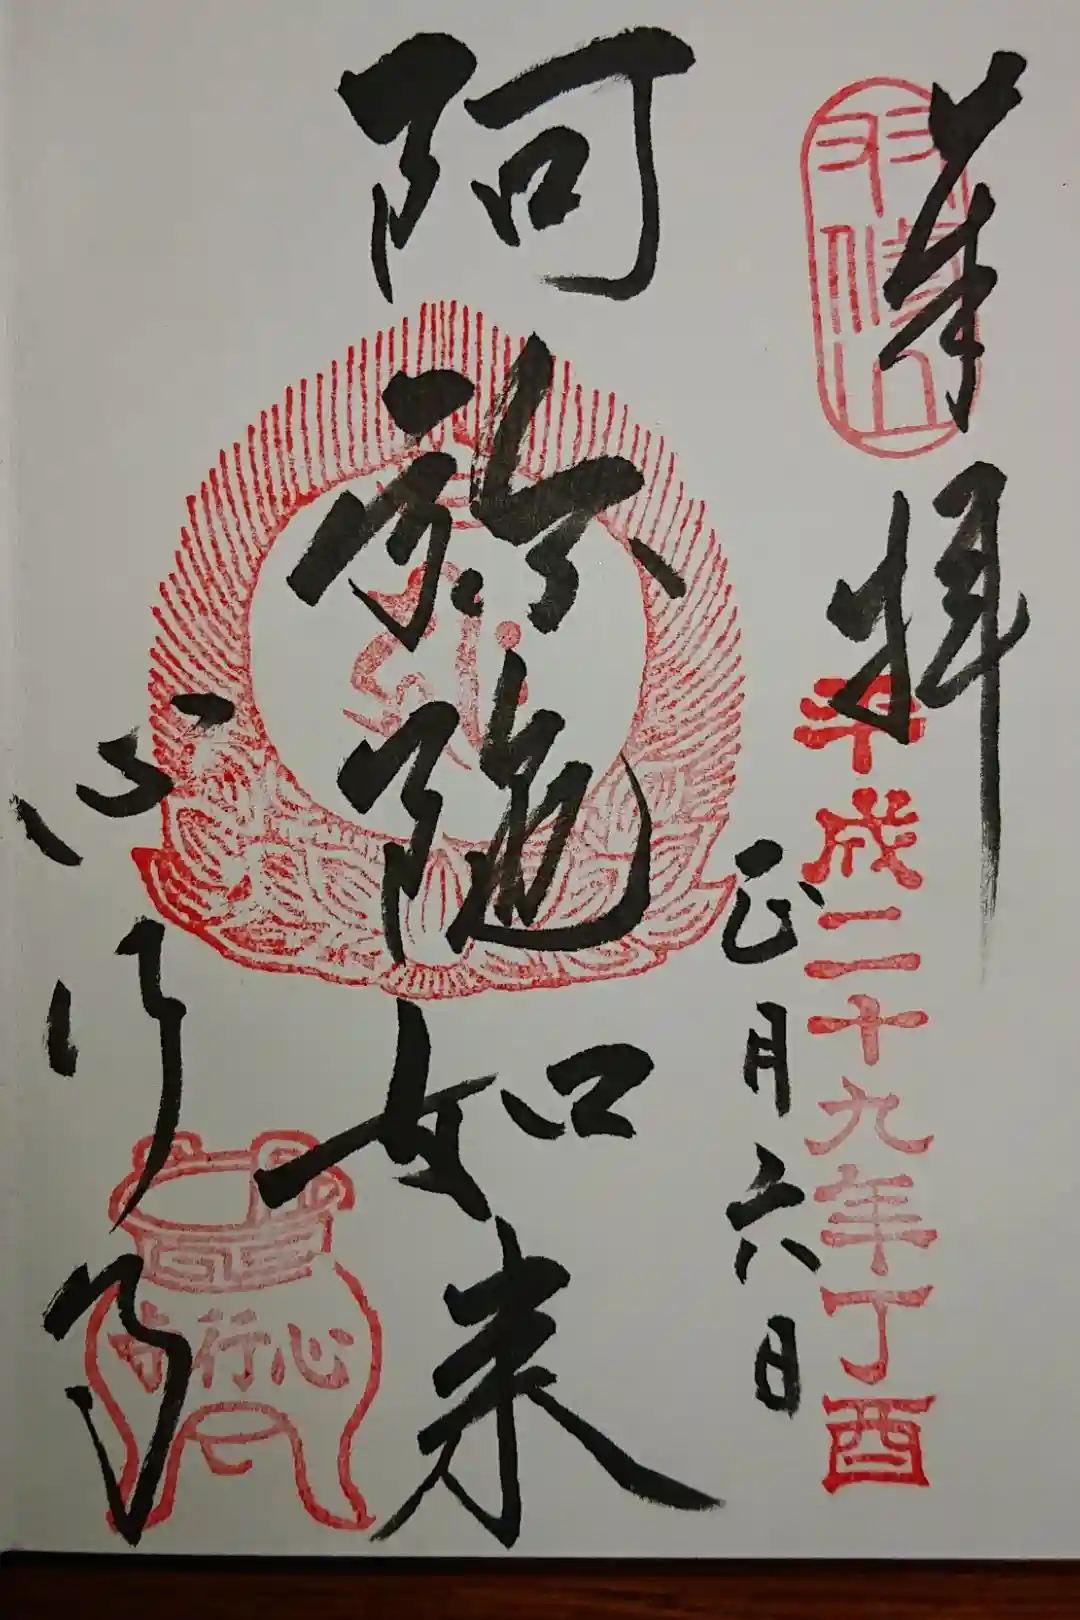 奉拝
平成二十九年丁酉
正月六日
阿弥陀如来
心行寺
心行寺